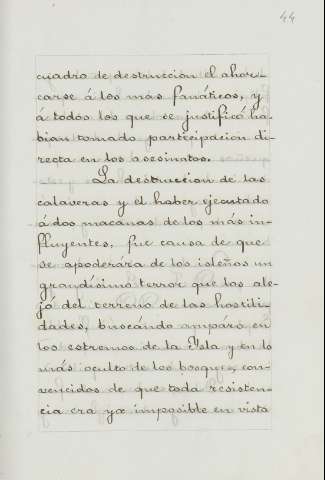 44
cuadro de destruccion el ahor-
carse á los más fanáticos, y
á todos los que se justificó ha-
bian tomado participacion di-
recta en los asesinatos.
La destruccion de las
calaveras y el haber ejecutado
á dos macanas de los más in-
fluyentes, fue causa de que
se apoderára de los isleños un
grandísimo terror que los ale-
jó del terreno de las hostili-
dades, buscando amparo en
los estremos de la Isla y en lo
más oculto de los bosques, con-
vencidos de que toda resisten-
cia era ya imposible en vista